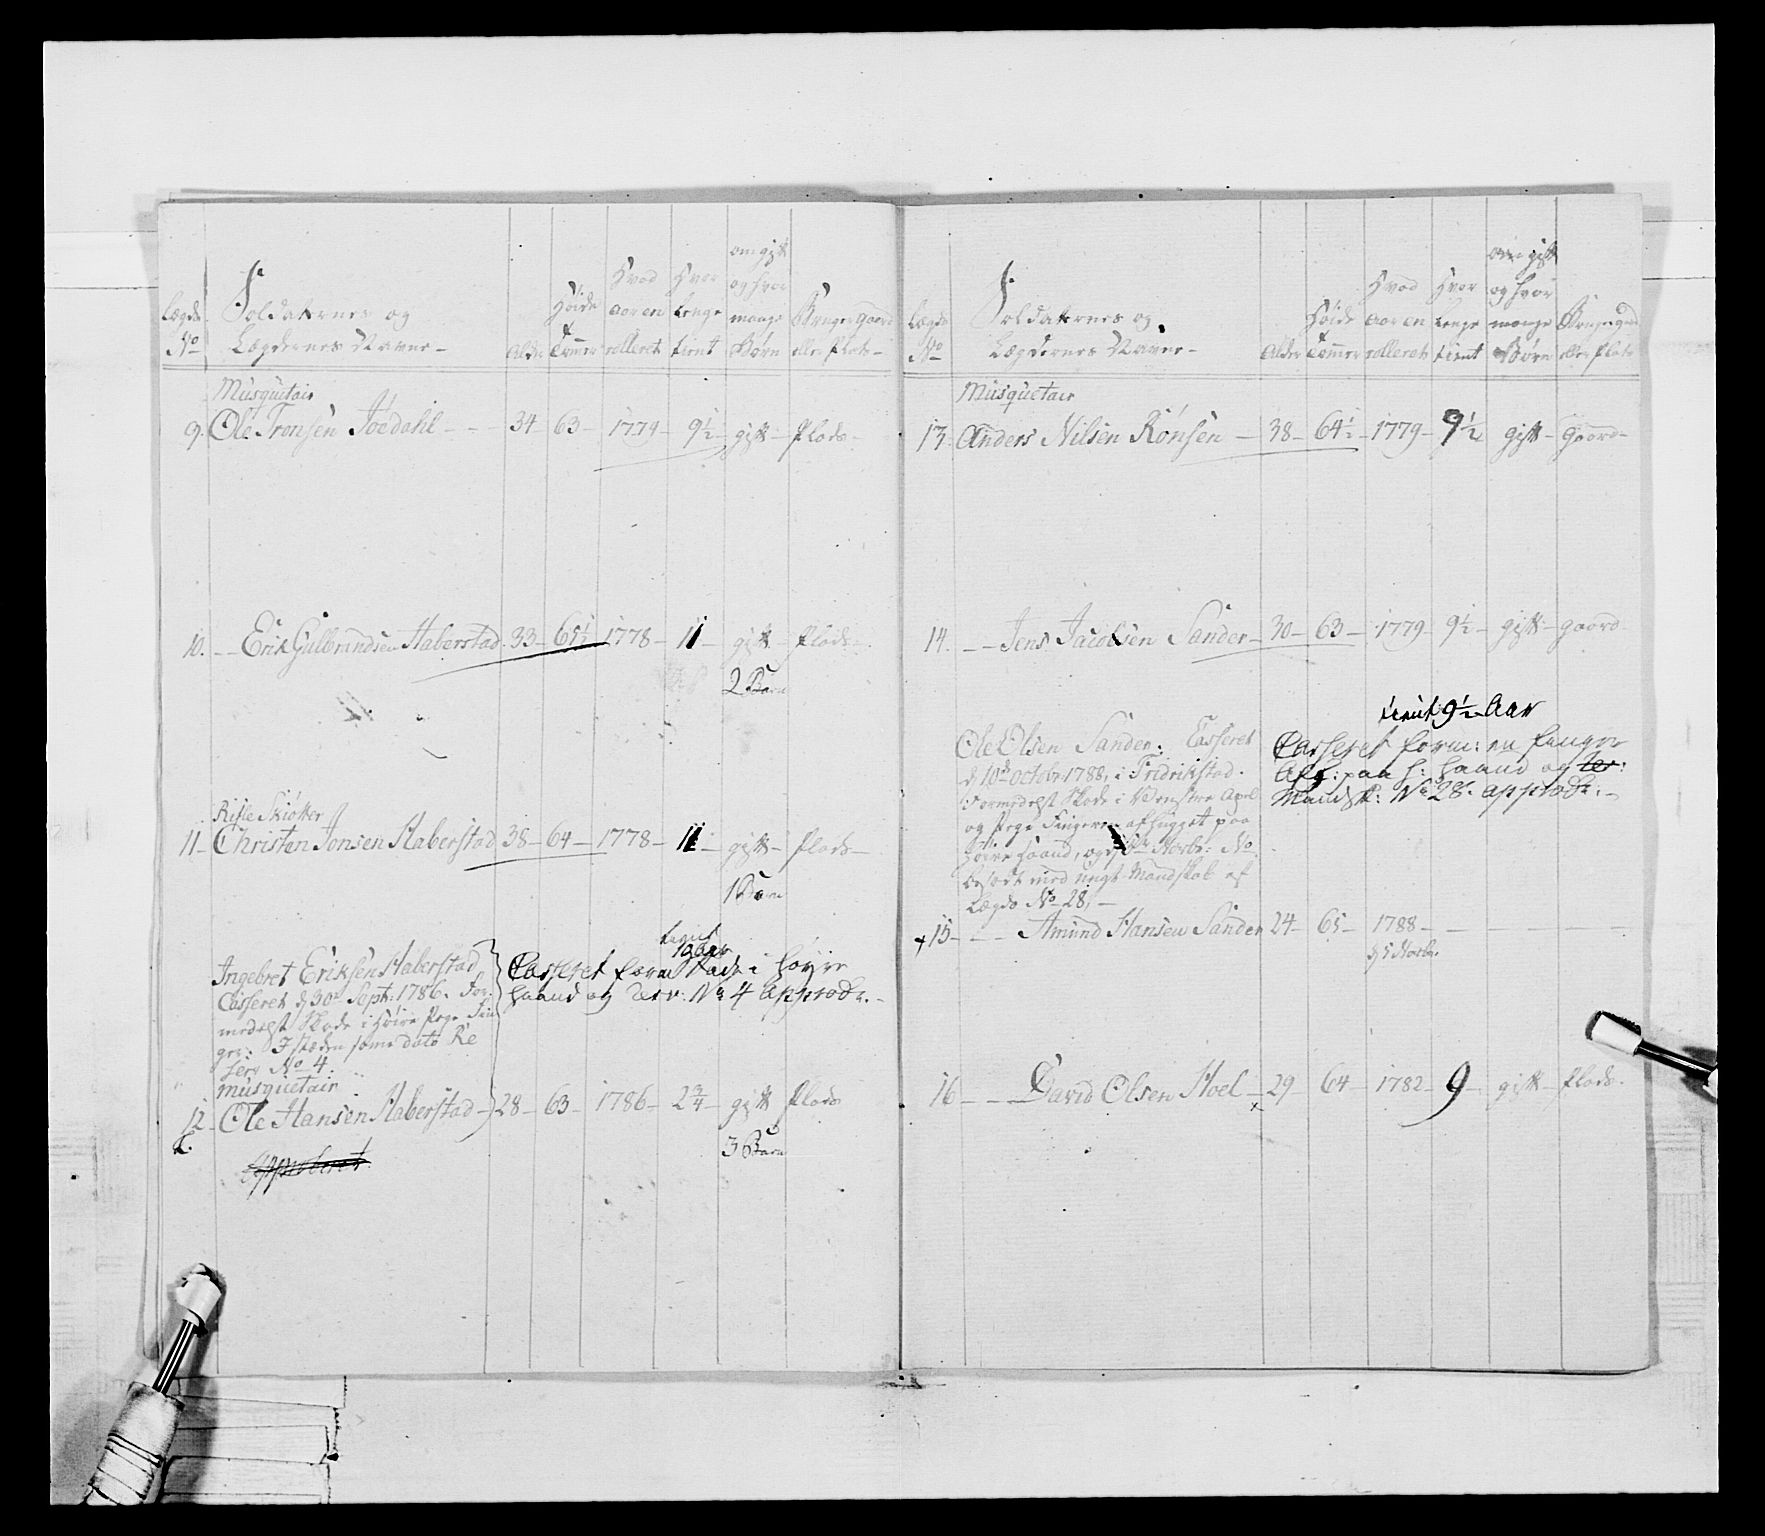 Lægds No
Soldaternes og
Lægdernes Navne
Alder
Høide Tommer
Hvad aar en rolleret
Hvor lenge tient
om gift og hvor mange Børn
Bruger Gaard eller Plads
Musquetair
9. Ole Tronsen Joedahl - - 34 63 - 1779 - 9½ - gift - Plads -
10. - - Erik Gulbrandsen Haberstad 33 - 65½ 1778 - 11 - gift - Plads -
2 Barn
Risle Skiøtter
11 - Christen Jonsen Haberstad 38 - 64 - 1778 - 11 - gift - Plads -
1 Barn
Ingebret Eriksen Haberstad
Casseret d 30 Sept: 1786. For-
medelst Skade i Høire Pege Fin
ger: I steden samme dato Re
serv No 4.
tient
19 aar
Casseret form Skade i høyre
haand og Reserv: No 4 approb:. -
Musquetair
12 - Ole Hansen Haberstad - 28 - 63 - 1786 - 2¾ - gift Plads
3 Barn
Approberet
Lægds No
Soldaternes og
Lægdernes Navne -
Alder
Høide Tommer
Hvad aar en rolleret
Hvor lenge tient
om gift og hvor mange Børn
Bruger Gaard eller Plads
Musquetair
13. Anders Nilsen Rønsen - 38 - 64½ - 1779 - 9½ gift - Gaard -
14. - - Jens Jacobsen Sander - 30 - 63 - 1779 - 9½ - gift - gaard -
tient 9½ Aar
Ole Olsen Sander: Casseret
d 10de octobr 1788, i Fridrikstad.
Formedelst Skade i Venstre
og Pege Fingeren afhugget paa
høire haand, og d 5te Novbr:
besadt med ungt Mandskab af
Lægds No 28, -
Casseret form: en finger
Afh: paa h: haand og
Mandsk: No 28. approb:. -
+ 15 - - - Amund Hansen Sander 24 - 65 - 1788 - - - -
d 5 Novbr.
16 - - David Olsen Hoel - 29 - 64 - 1782 - 9 - gift - Plads.